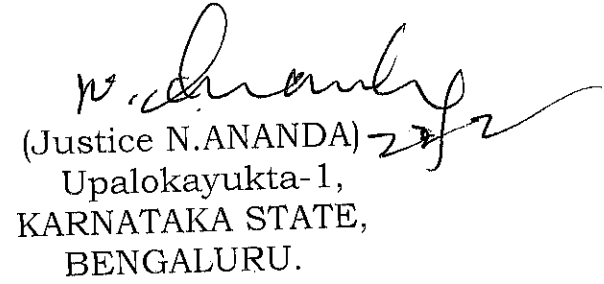 N. Ananda
(Justice N.ANANDA)
Upalokayukta-1,
KARNATAKA STATE,
BENGALURU.